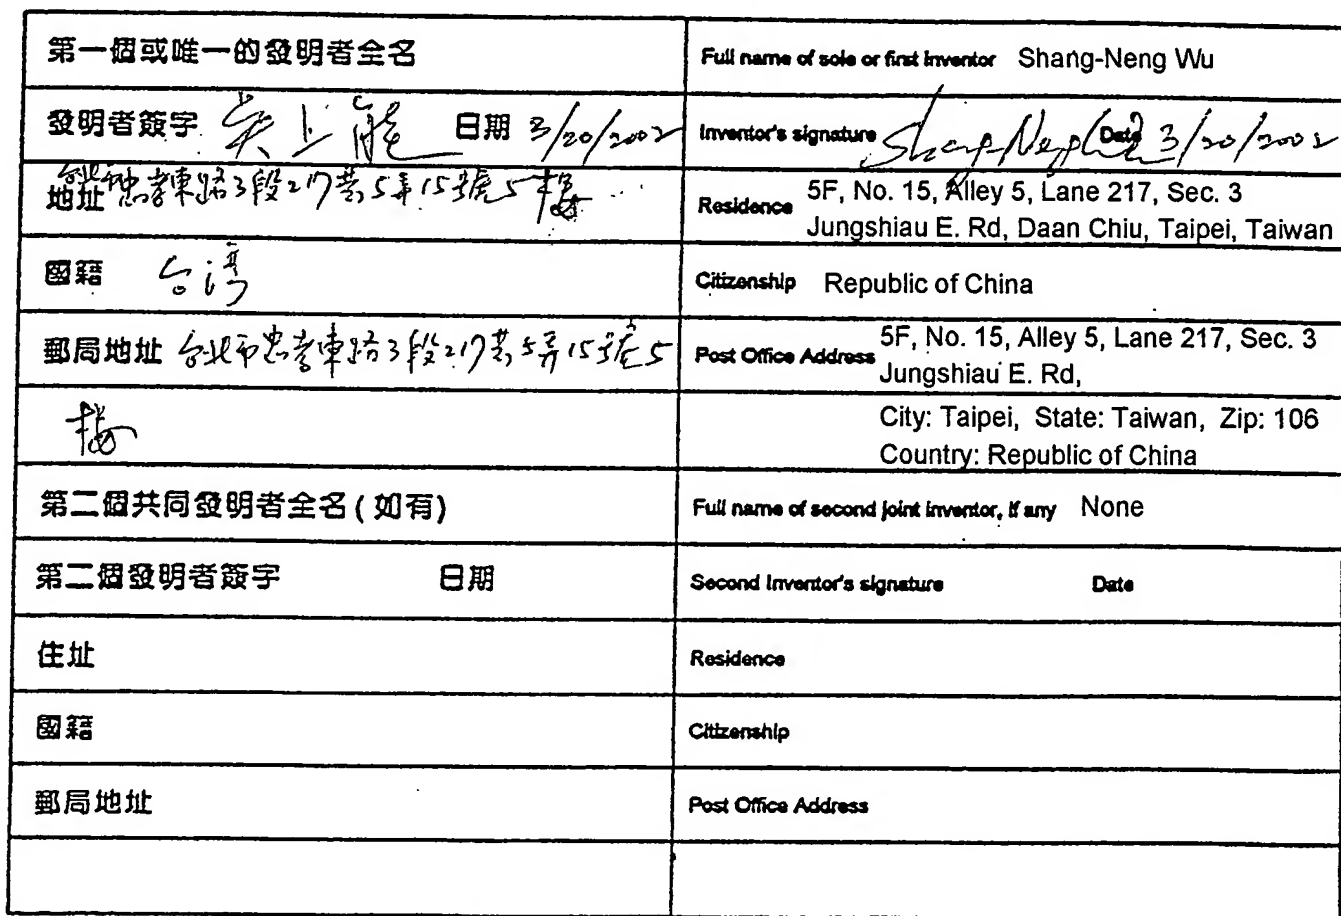 第一個或唯一的發明者全名
Full name of sole or first inventor Shang-Neng Wu
發明者簽字 吳上能 日期 3/20/2002
Inventor's signature Shang-Neng Wu Date 3/20/2002
地址 台北市忠孝東路3段217巷5弄15號5樓
Residence 5F, No. 15, Alley 5, Lane 217, Sec. 3
Jungshiau E. Rd, Daan Chiu, Taipei, Taiwan
國籍 台湾
Citizenship Republic of China
郵局地址 台北市忠孝東路3段217巷5弄15號5
Post Office Address 5F, No. 15, Alley 5, Lane 217, Sec. 3
Jungshiau E. Rd,
樓
City: Taipei, State: Taiwan, Zip: 106
Country: Republic of China
第二個共同發明者全名 (如有)
Full name of second joint inventor, if any None
第二個發明者簽字 日期
Second Inventor's signature Date
住址
Residence
國籍
Citizenship
郵局地址
Post Office Address